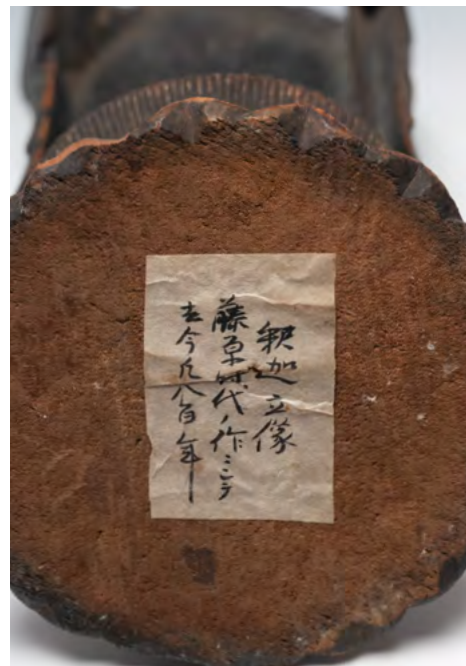 釈迦立像
藤原時代ノ作ニシテ
去今凡八百年